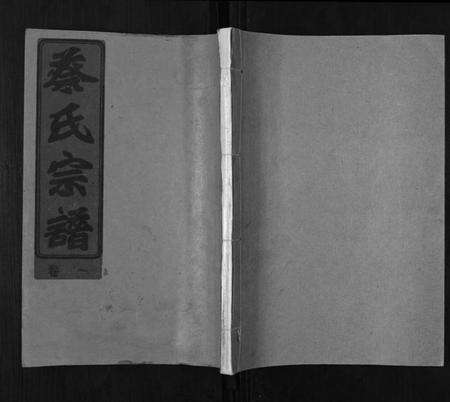 蔡氏宗譜
卷一